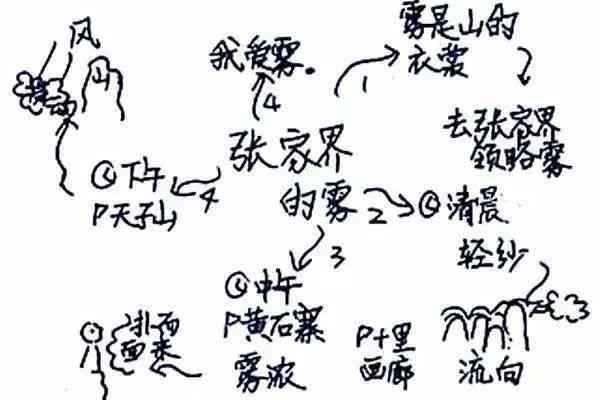 风
山
我爱雾。
4
1
雾是山的
衣裳
去张家界
领略雾
张家界
的雾
2
清晨
轻纱
流向
P十里
画廊
3
中午
P黄石寨
雾浓
4
下午
P天子山